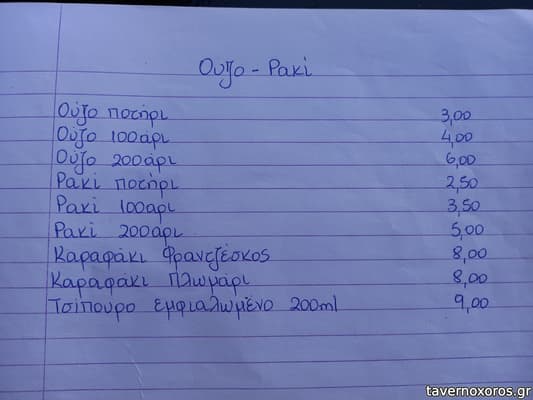 Ούζο - Ρακί
Ούζο ποτήρι 3,00
Ούζο 100άρι 4,00
Ούζο 200άρι 6,00
Ρακί ποτήρι 2,50
Ρακί 100άρι 3,50
Ρακί 200άρι 5,00
Καραφάκι Φραντζέσκος 8,00
Καραφάκι Πλωμάρι 8,00
Τσίπουρο εμφιαλωμένο 200ml 9,00
tavernoxoros.gr